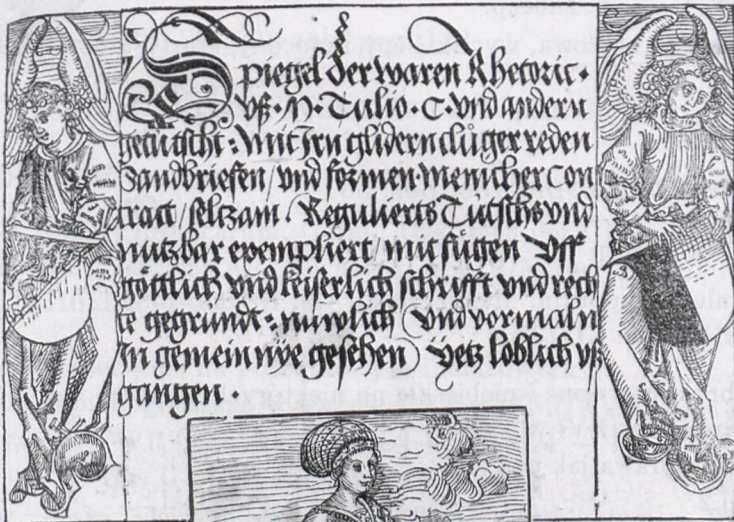 Spiegel der waren Rhetoric.
vß. M. Tulio. C. vnd andern
getütscht: Mit Irn glidern clůger reden
Sandbriefen / vnd formen. menicher con
tract / seltzam. Regulierts Tütschs vnd
nutzbar exempliert / mit fůgen Vff
göttlich vnd keiserlich schrifft vnd rech
te gegründt: nuwlich (vnd vormaln
In gemein nÿe gesehen) ÿetz loblich vß
gangen